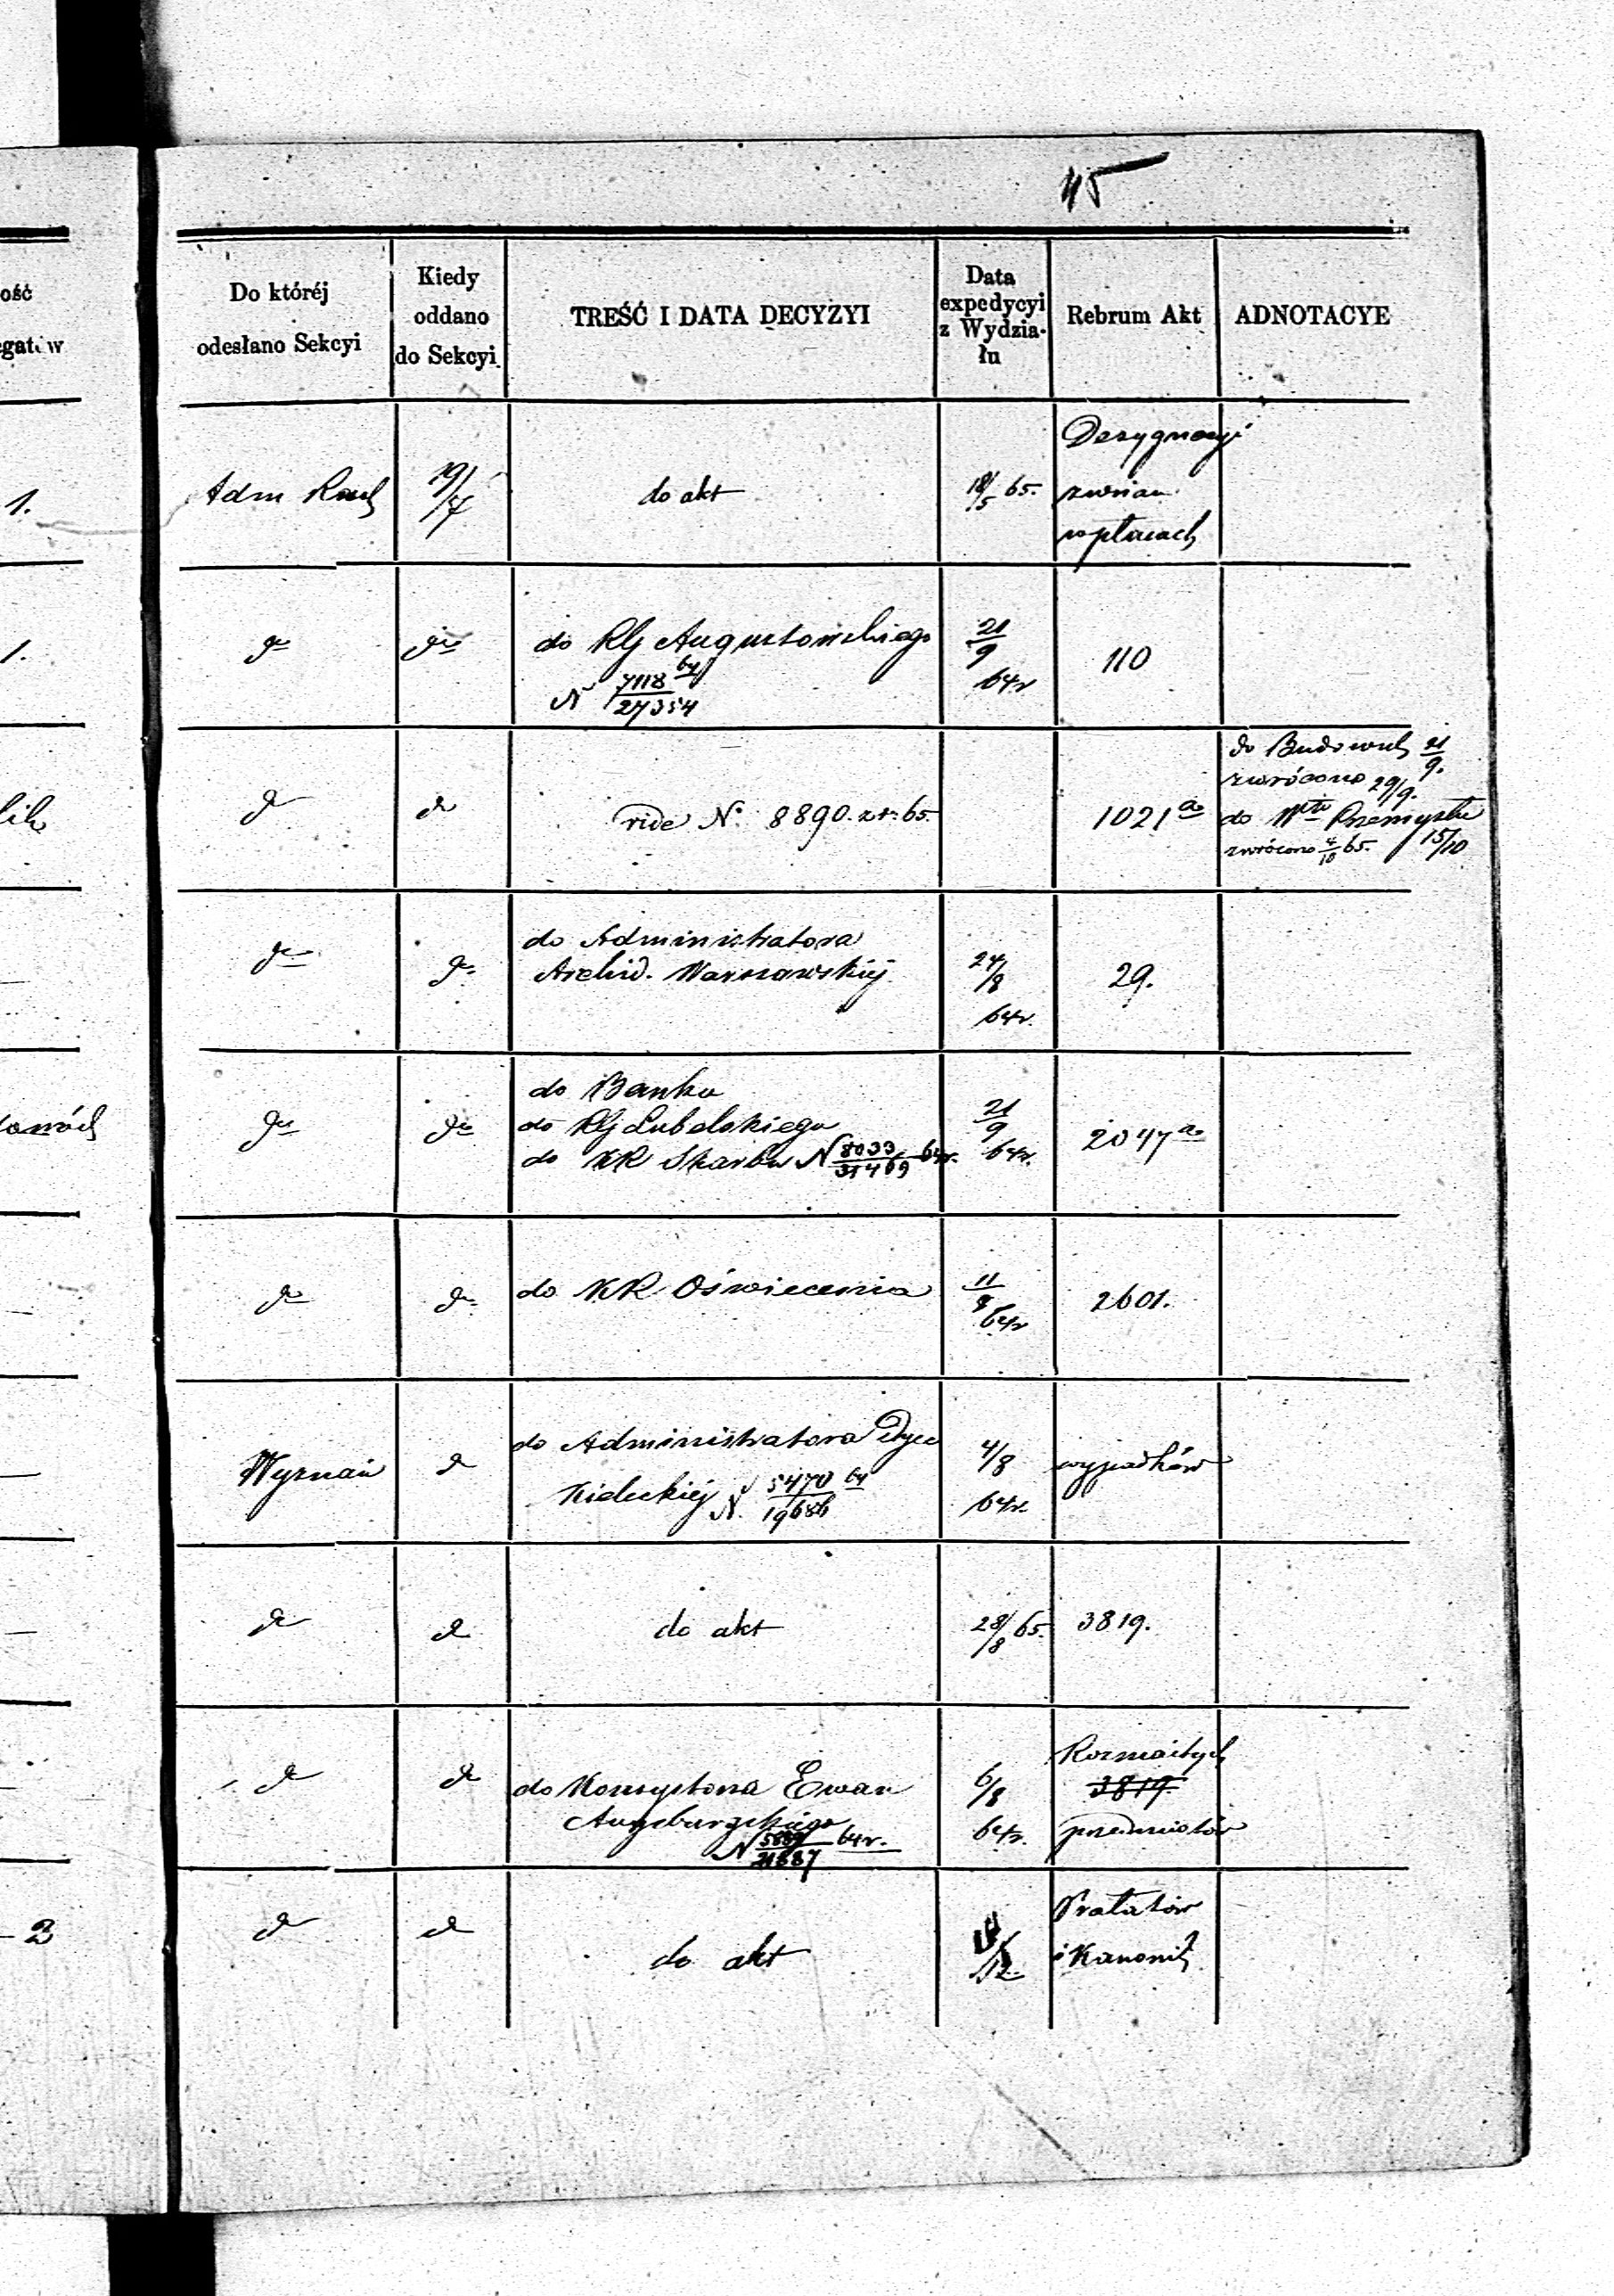 45
ość
egatów
Do któréj
odesłano Sekcyi
Kiedy
oddano
do Sekcyi
TREŚĆ I DATA DECYZYI
Data
expedycyi
z Wydzia-
łu
Rebrum Akt
ADNOTACYE
1.
Adm Rach
19/7
do akt
18/5 65.
Dezygnacyi
zmian
w płacach
1.
do
do
do RG Augustowskiego
N 7118/27354 64
21/9
64r
110
do
do
vide No. 8890. z r. 65.
1021 a
do Budowl. 21/9.
zwrócono 29/9.
do Przemysłu 15/10
zwrócono 4/10 65.
do
do
do Administratora
Archid. Warszawskiéj
24/8
64r.
29.
do
do
do Banku
do RG Lubelskiego
do KR Skarbu N 8033/31469 64r.
21/9
64r.
2047 a
do
do
do KR Oświecenia
11/8
64r
2601.
Wyznań
do
do Administratora Dyec
Kieleckiéj N. 5470/19686 64
4/8
64r.
wypadków
do
do
do akt
28/8 65.
3819.
do
do
do Konsystorza Ewan
Augsburgskiego
N 21887 64r.
6/8
64r.
Rozmaitych
3819.
przedmiotów
2
do
do
do akt
/12
Prałatów
i Kanonik